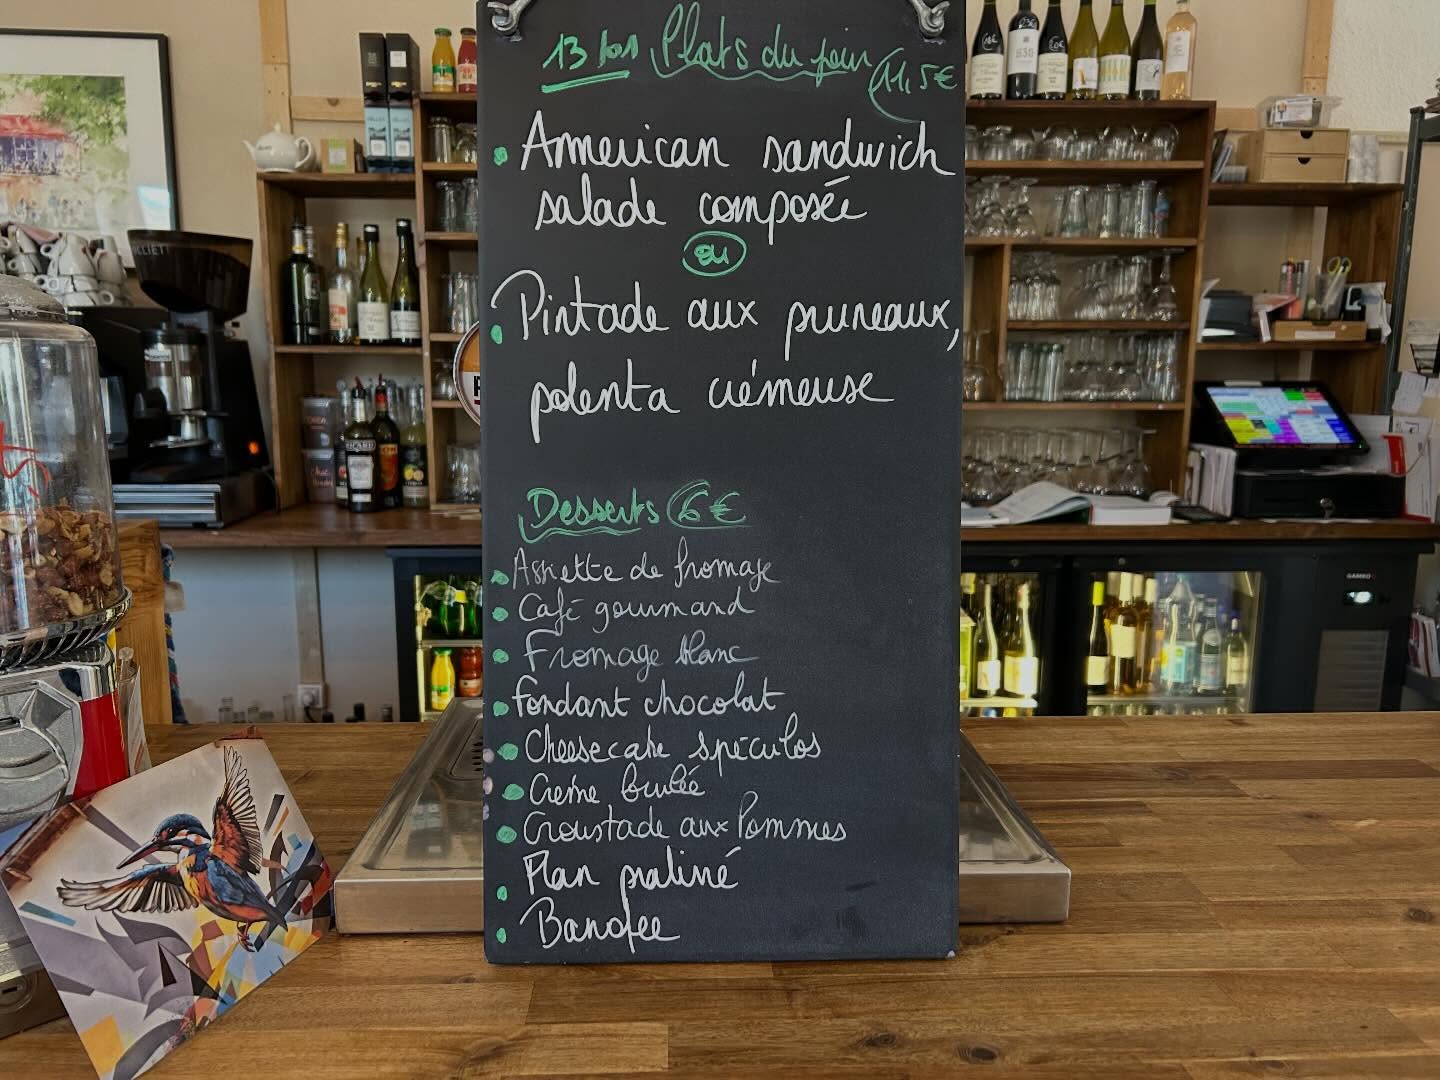 13/01 Plats du jour 11,5€
American sandwich
salade composée
ou
Pintade aux pruneaux,
polenta crémeuse
Desserts 6€
Assiette de fromage
Café gourmand
Fromage blanc
Fondant chocolat
Cheesecake spéculos
Crème brulée
Croustade aux Pommes
Flan praliné
Banofee